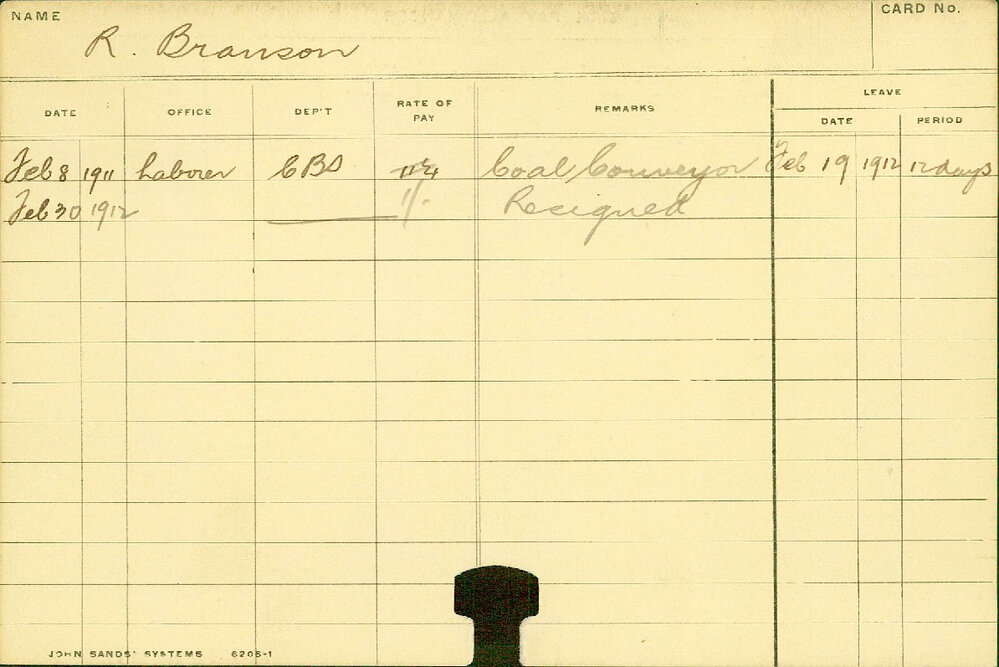 NAME
CARD No.
R. Branson
DATE OFFICE DEP'T RATE OF PAY REMARKS LEAVE
DATE PERIOD
Feb 8 1911 Laborer CBS Coal Conveyor Feb 19 1912 12 days
Feb 30 1912 11/- Resigned
JOHN SANDS' SYSTEMS 6206-1